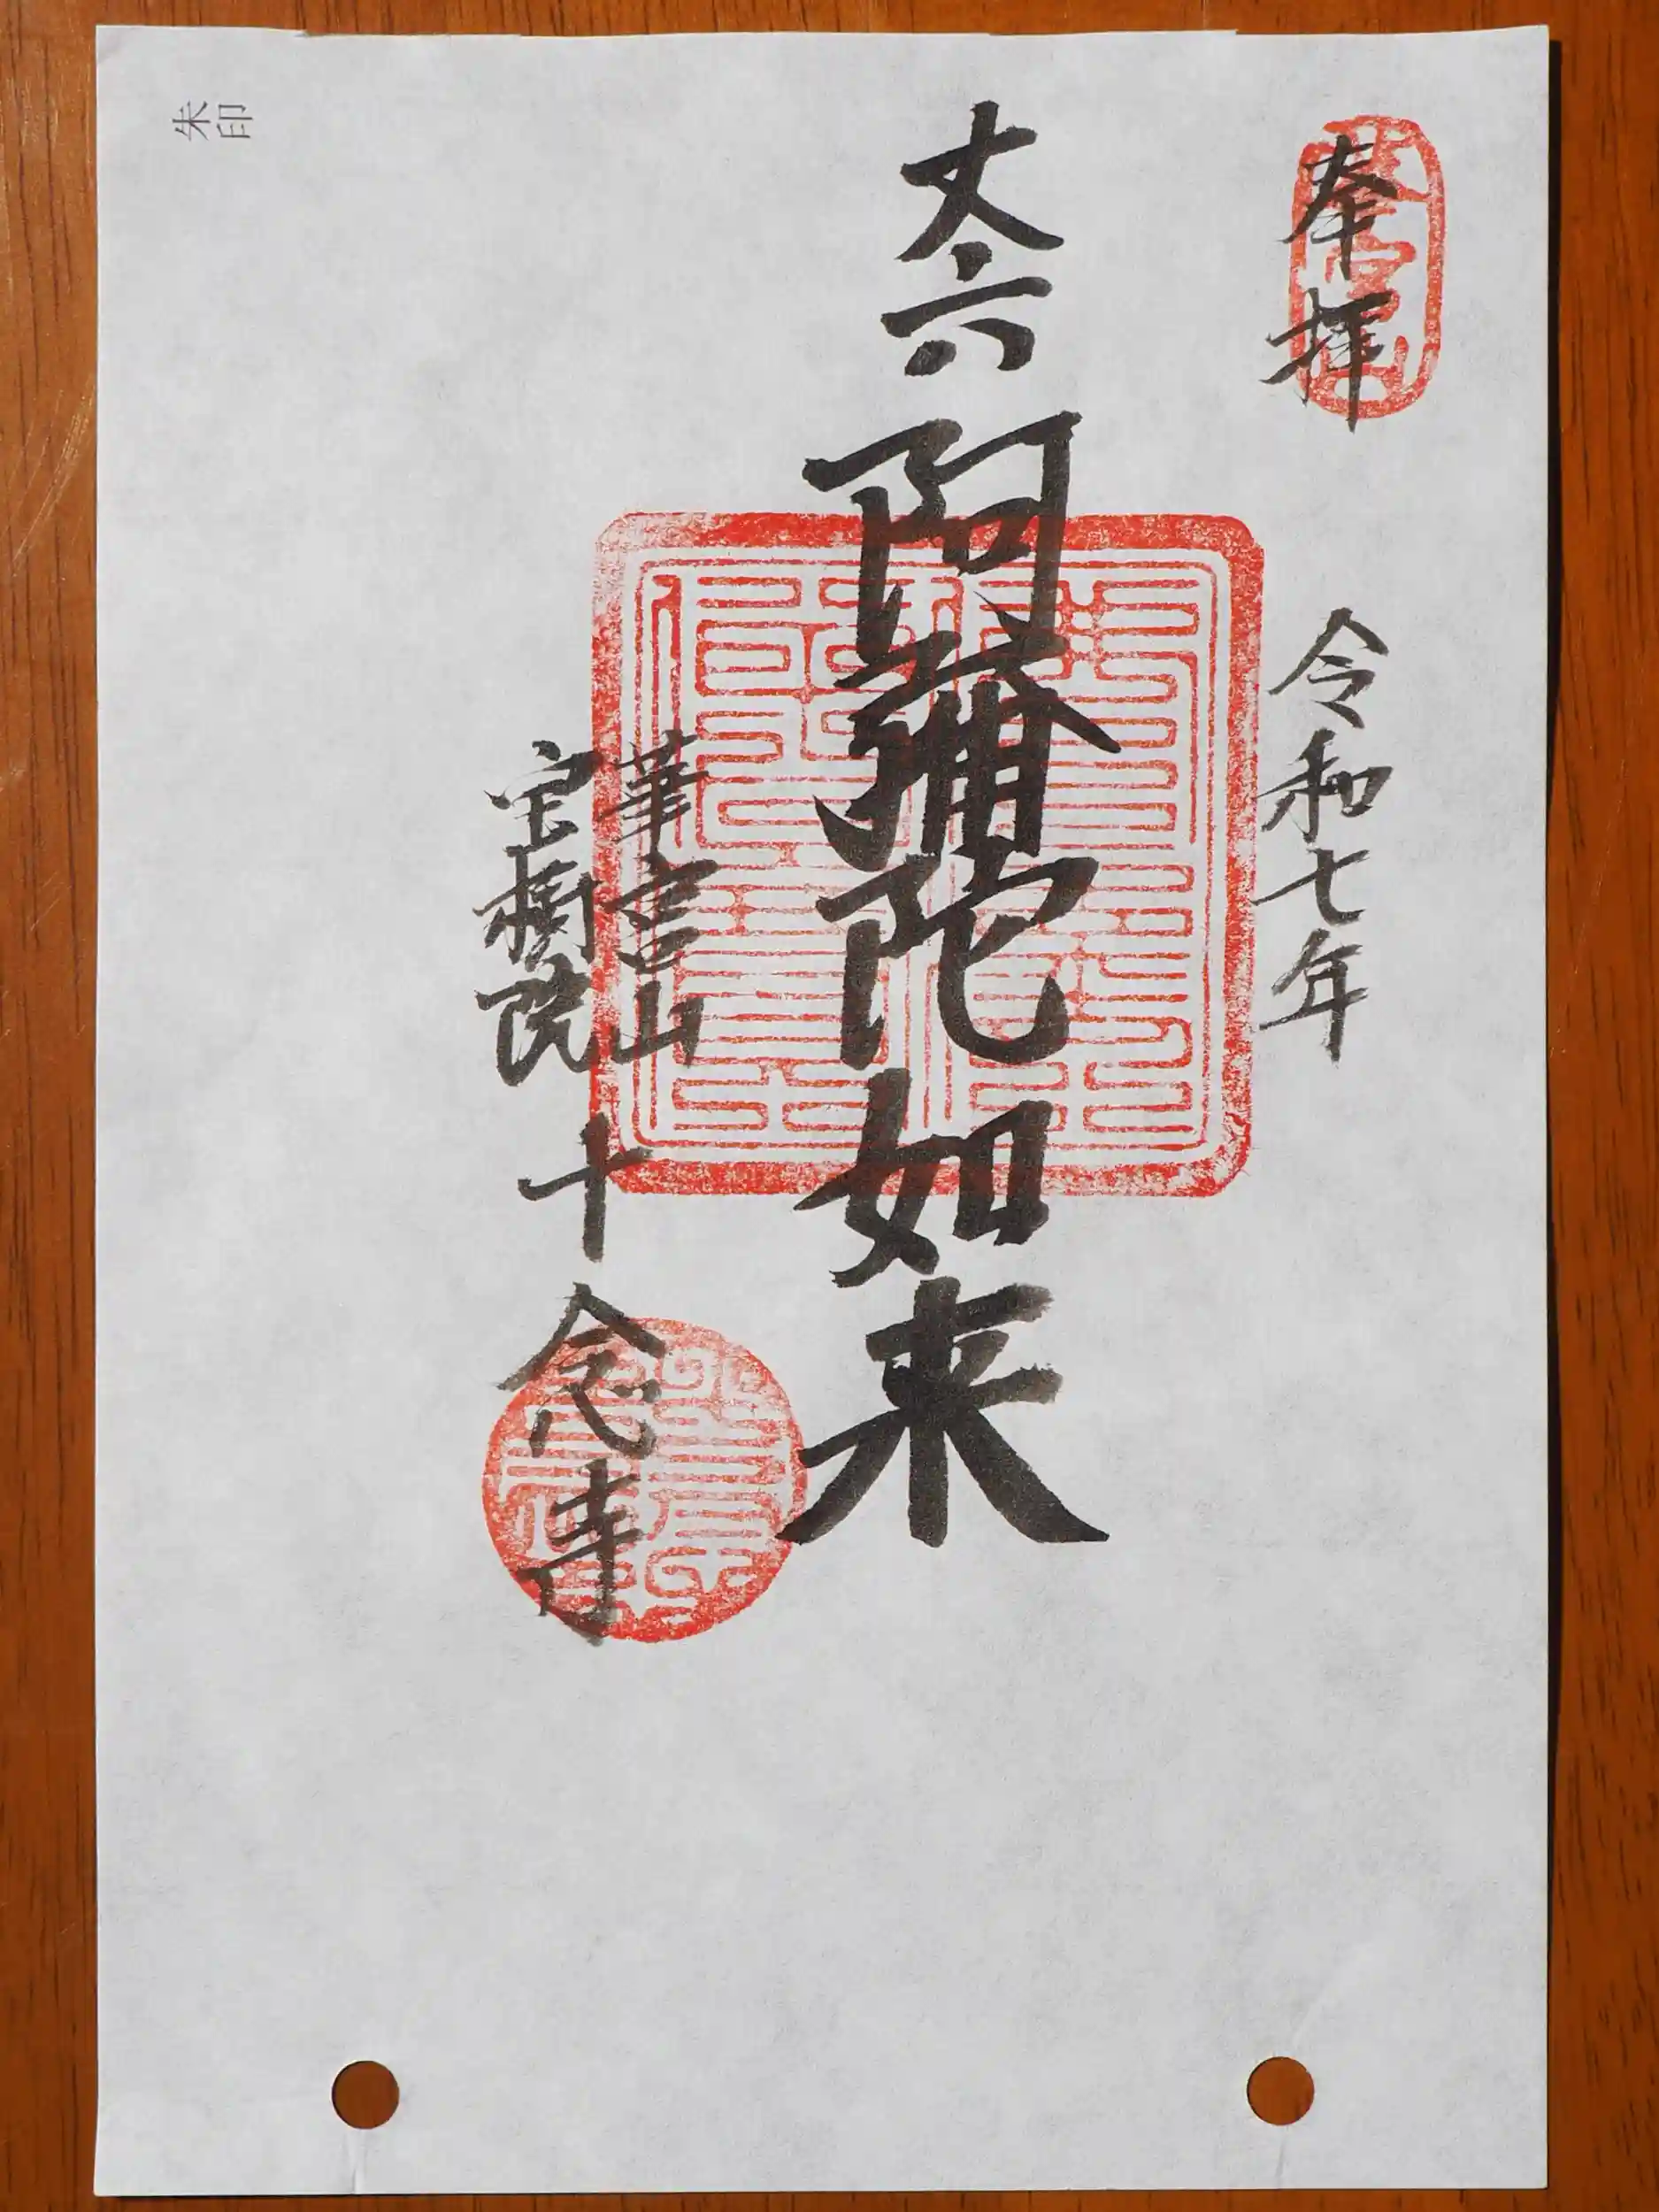 奉拝
令和七年
丈六
阿彌陀如来
華宮山
宝樹院
十念寺
朱印